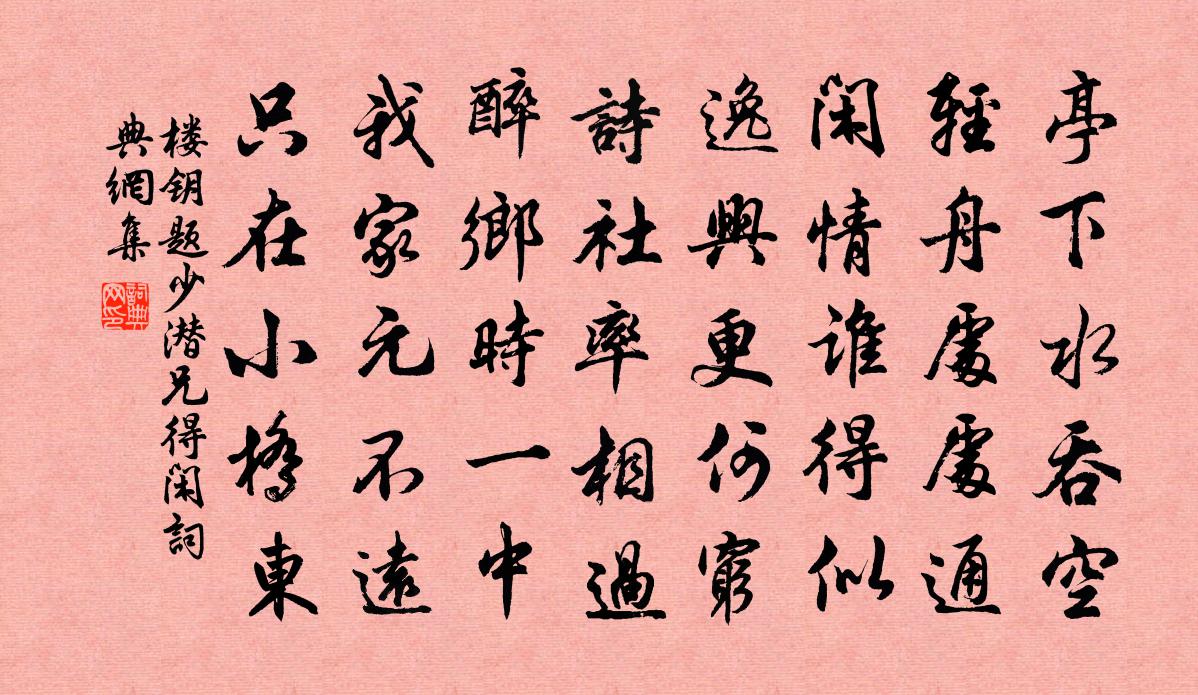 亭下水吞空
輕舟處處通
閑情誰得似
逸興更何窮
詩社率相過
醉鄉時一中
我家元不遠
只在小橋東
楼钥题少潜兄得闲詞
典網集
詞典
网印